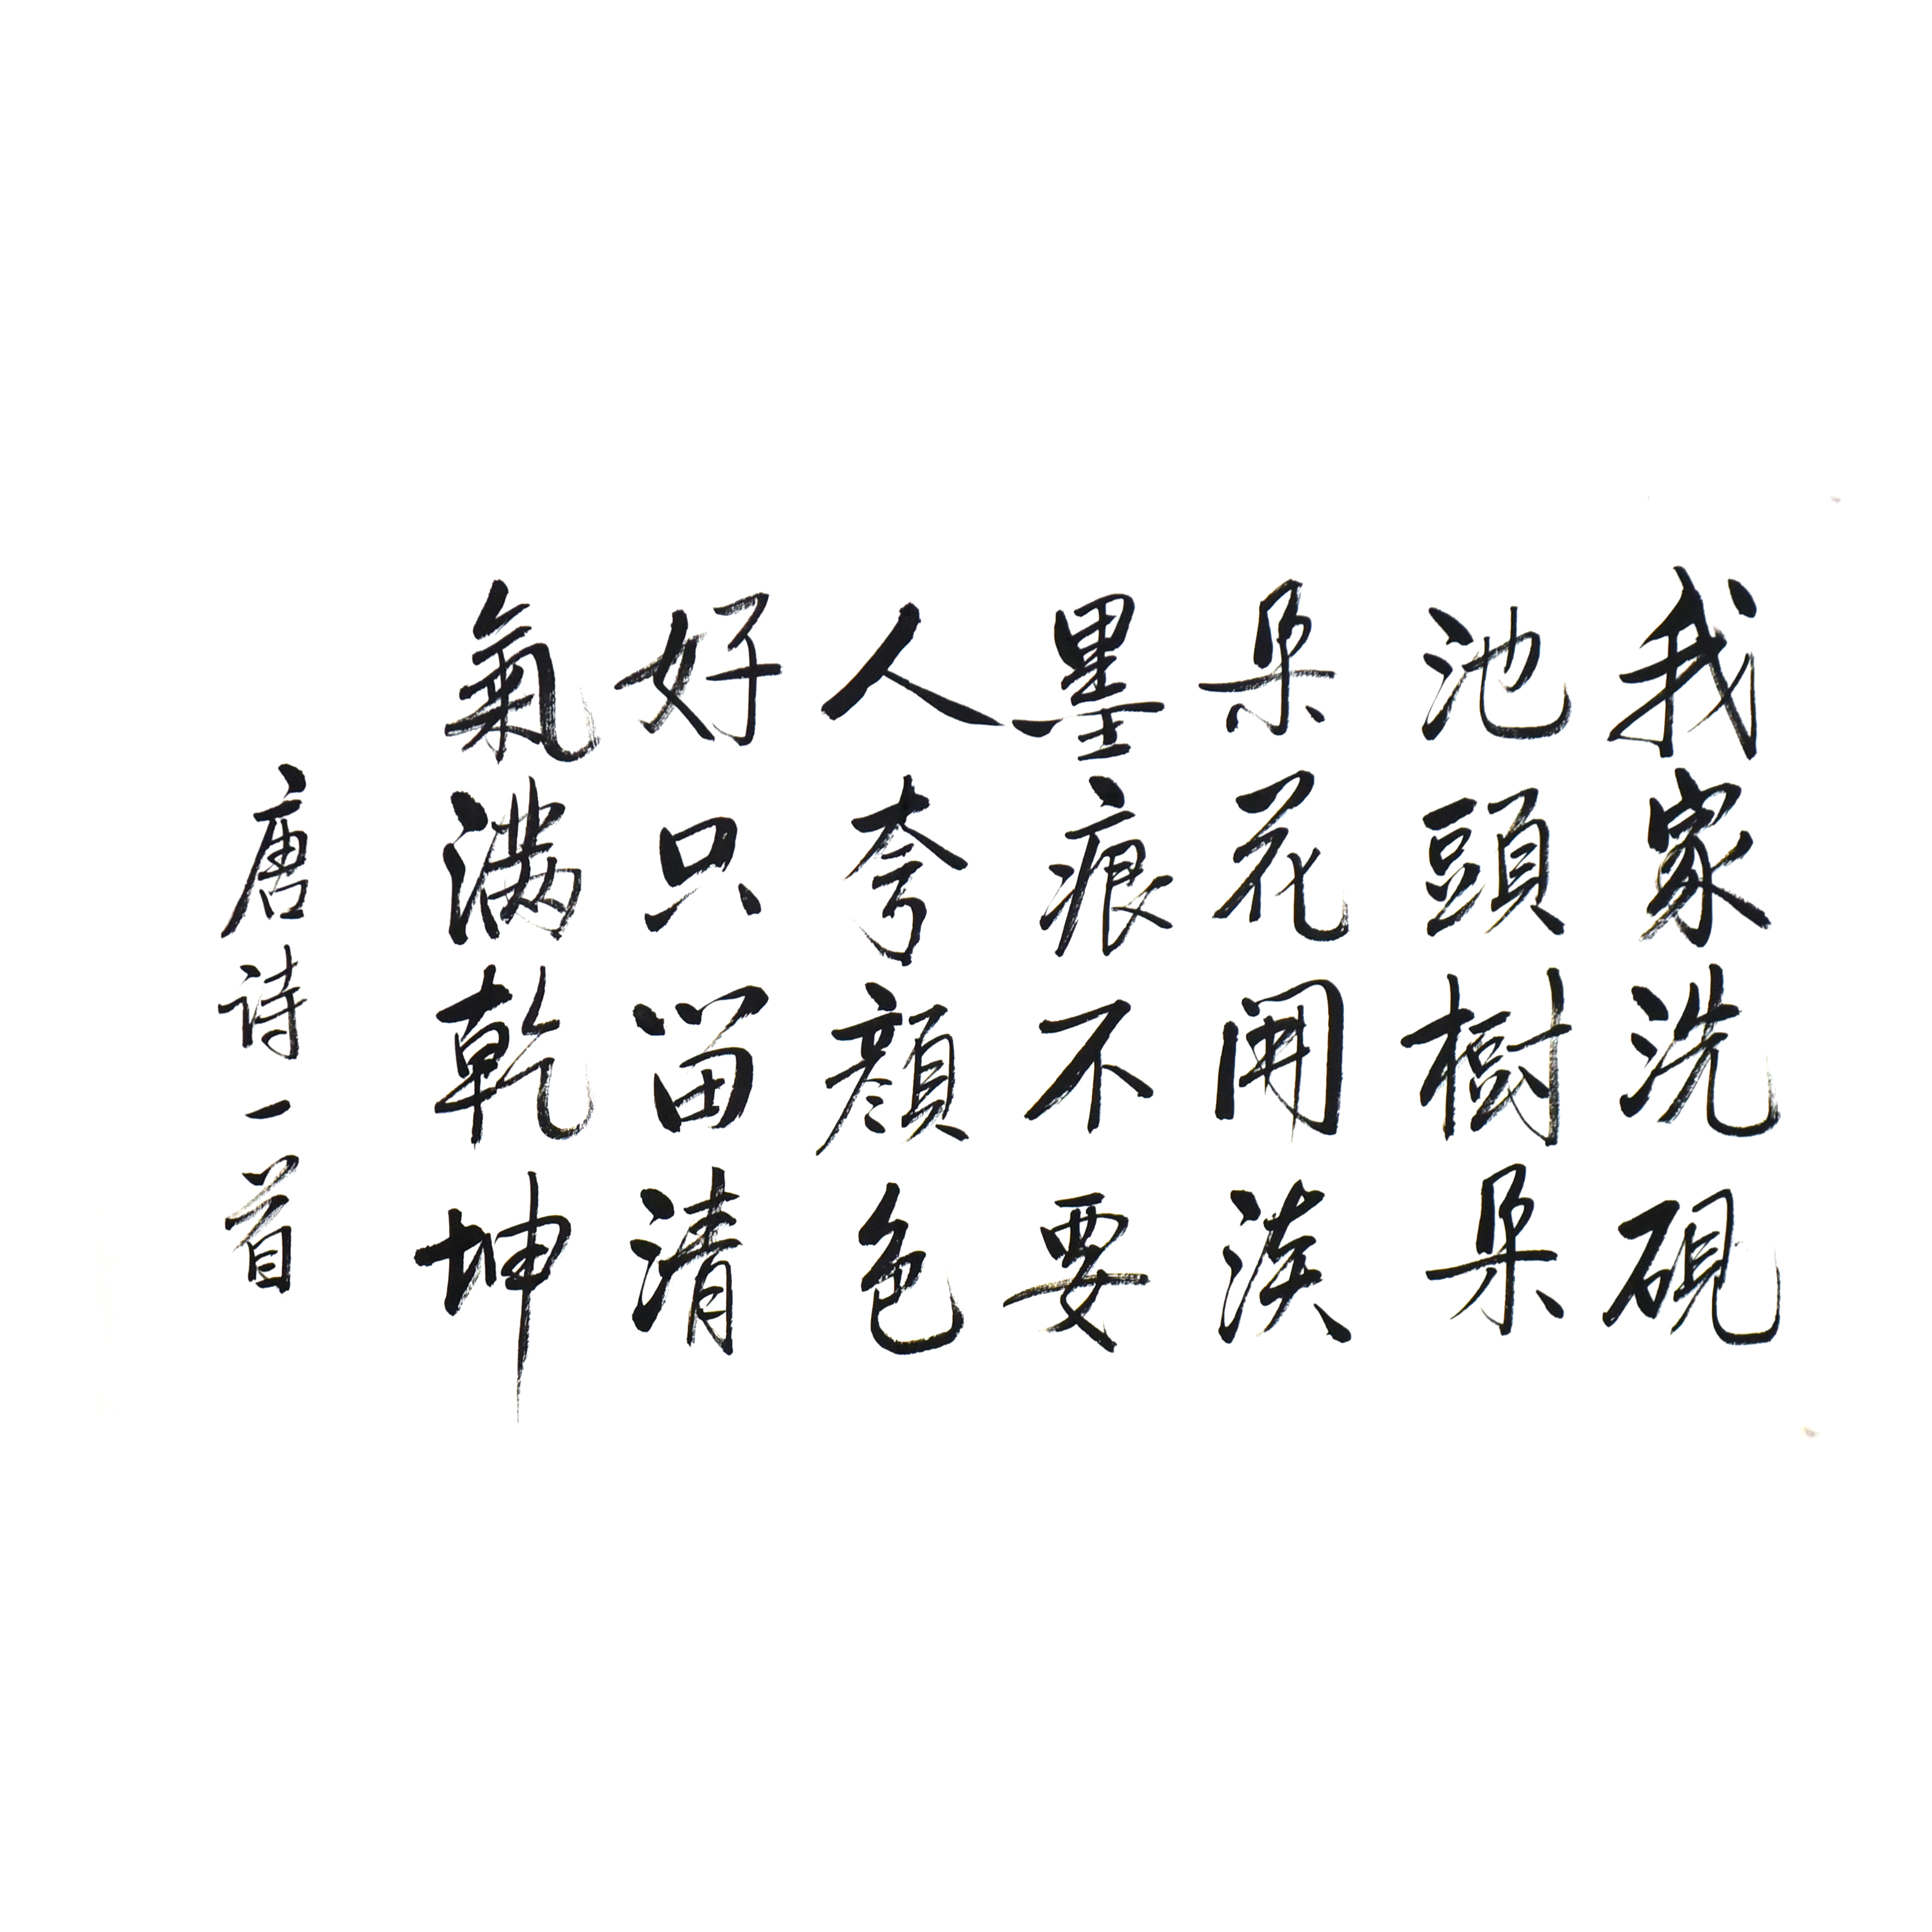 我家洗硯
池頭樹朵
朵花開淡
墨痕不要
人夸顏色
好只留清
氣滿乾坤
唐诗一首